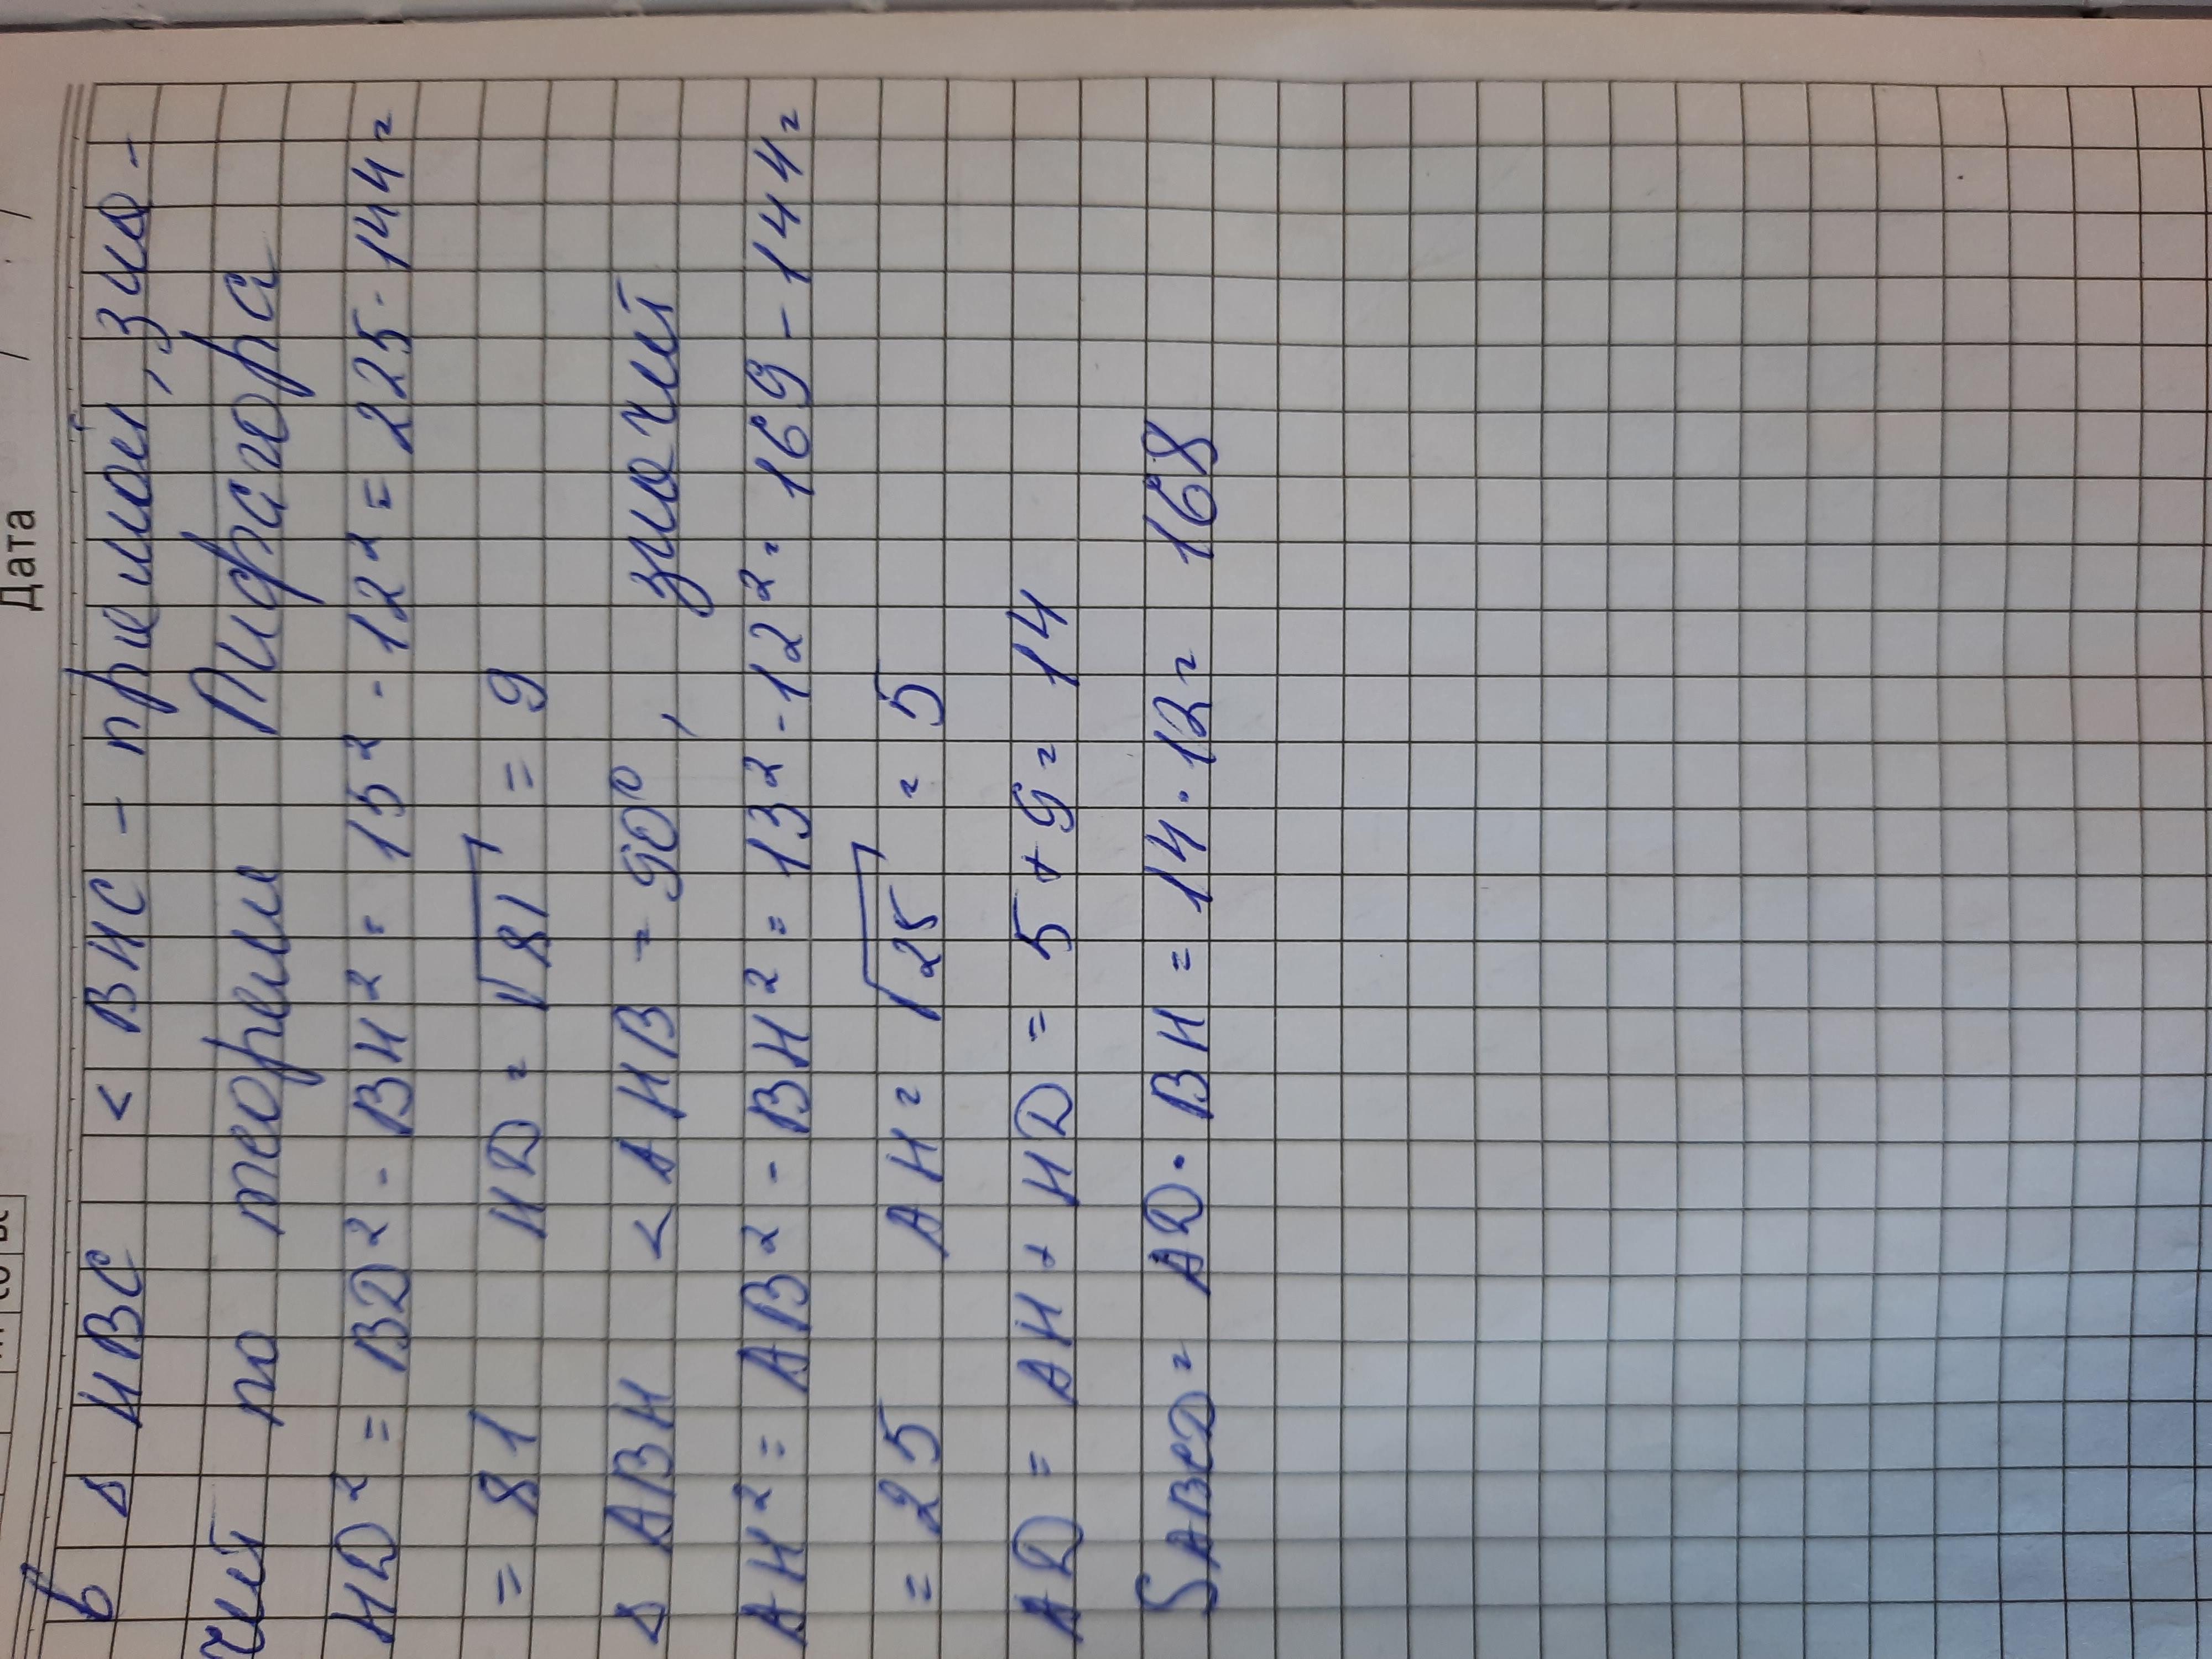 Дата / /
в Δ HBC < BHC - прямой, зна-
чит по теореме Пифагора
HD² = BD² - BH² = 15² - 12² = 225 - 144 =
= 81 HD = √81 = 9
Δ ABH < AHB = 90°, значит
AH² = AB² - BH² = 13² - 12² = 169 - 144 =
= 25 AH = √25 = 5
AD = AH + HD = 5 + 9 = 14
SABCD = AD · BH = 14 · 12 = 168